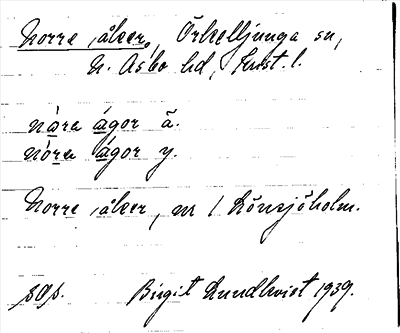 Norre åker, Örkelljunga sn,
N. Åsbo hd, Krist. l.
nåra ågor ä.
nóra ågor y.
Norre åker, nr 1 Lönsjöholm.
Birgit Lundkvist 1939.